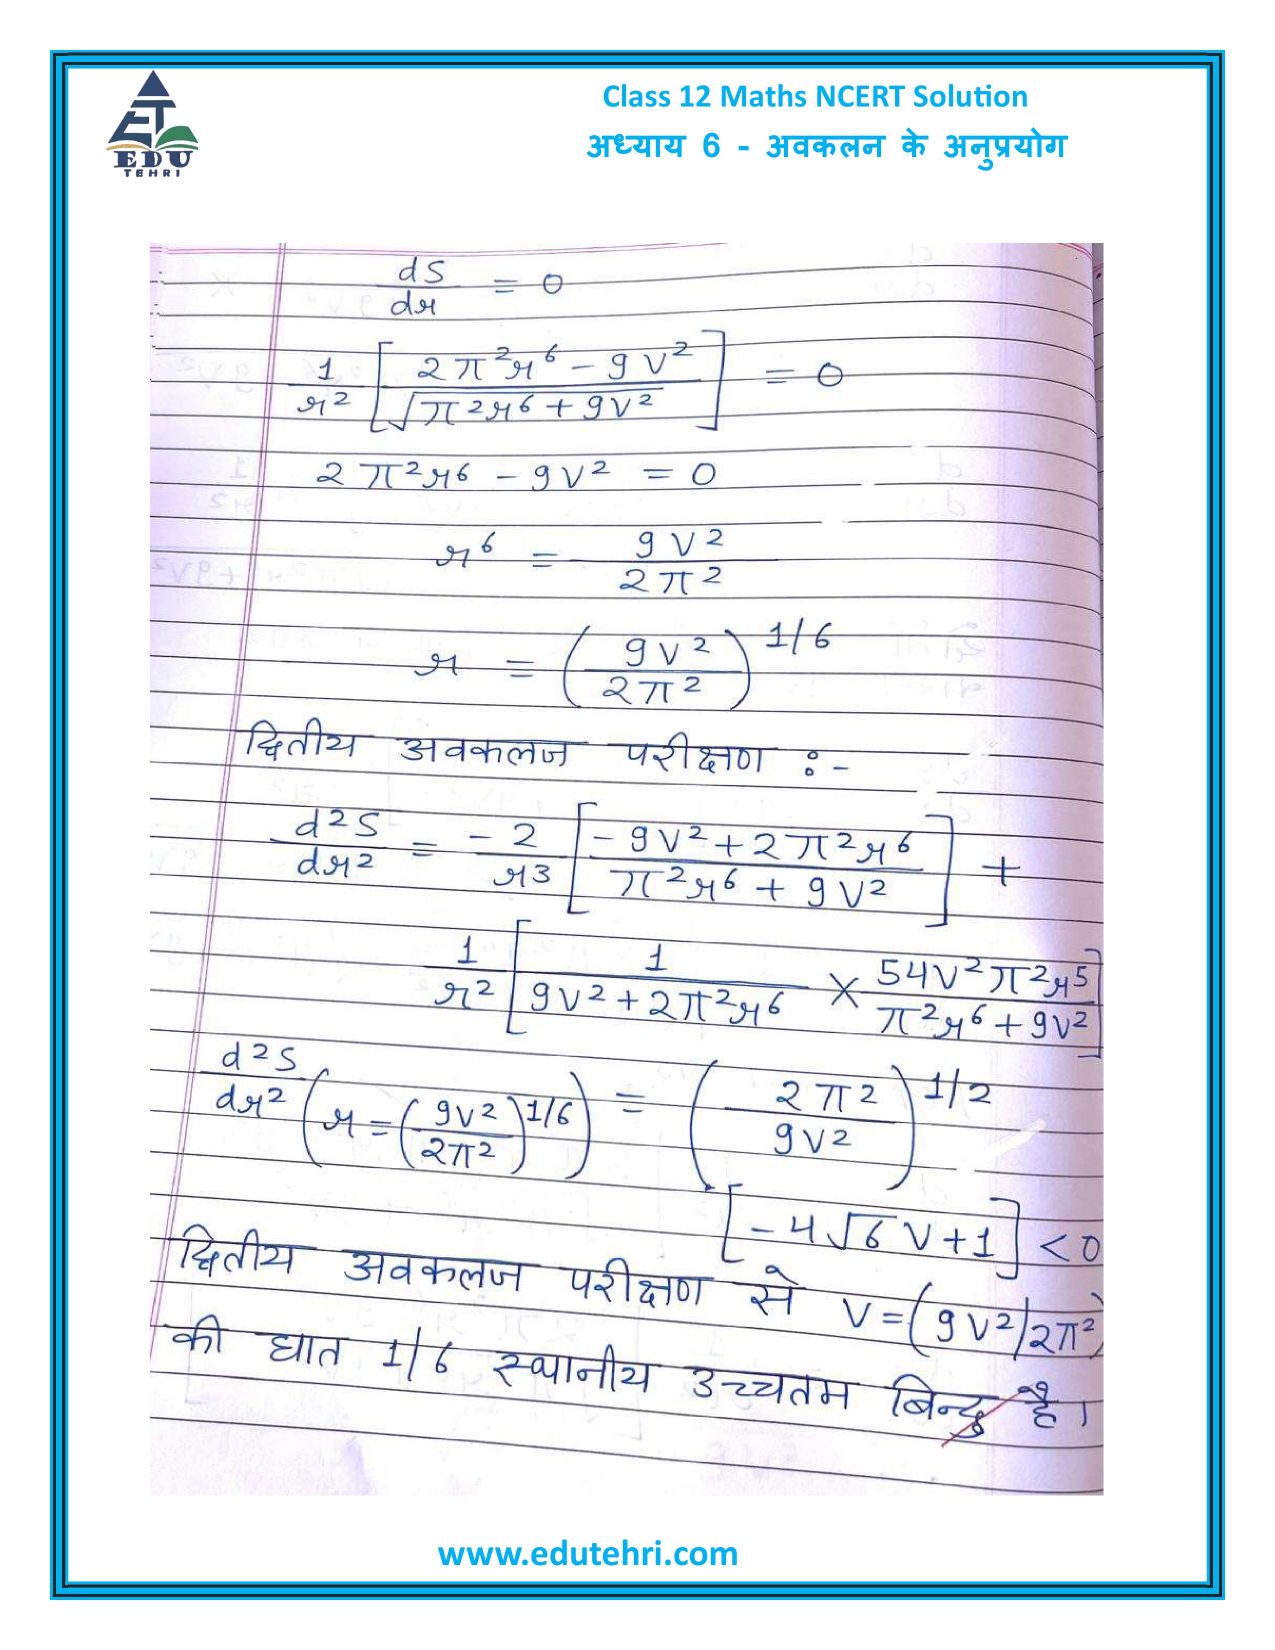 ET
EDU
TEHRI
Class 12 Maths NCERT Solution
अध्याय 6 - अवकलन के अनुप्रयोग
dS/dr = 0
1/r² [ (2π²r⁶ - 9V²) / √(π²r⁶ + 9V²) ] = 0
2π²r⁶ - 9V² = 0
r⁶ = 9V² / 2π²
r = (9V² / 2π²)^1/6
द्वितीय अवकलज परीक्षण :-
d²S/dr² = -2/r³ [ (-9V² + 2π²r⁶) / (π²r⁶ + 9V²) ] +
1/r² [ 1/(9V² + 2π²r⁶) × 54V²π²r⁵/(π²r⁶ + 9V²) ]
d²S/dr² (r = (9V²/2π²)^1/6) = (2π²/9V²)^1/2
[-4√6 V + 1] < 0
द्वितीय अवकलज परीक्षण से V = (9V²/2π²)
की घात 1/6 स्थानीय उच्चतम बिन्दु है।
www.edutehri.com